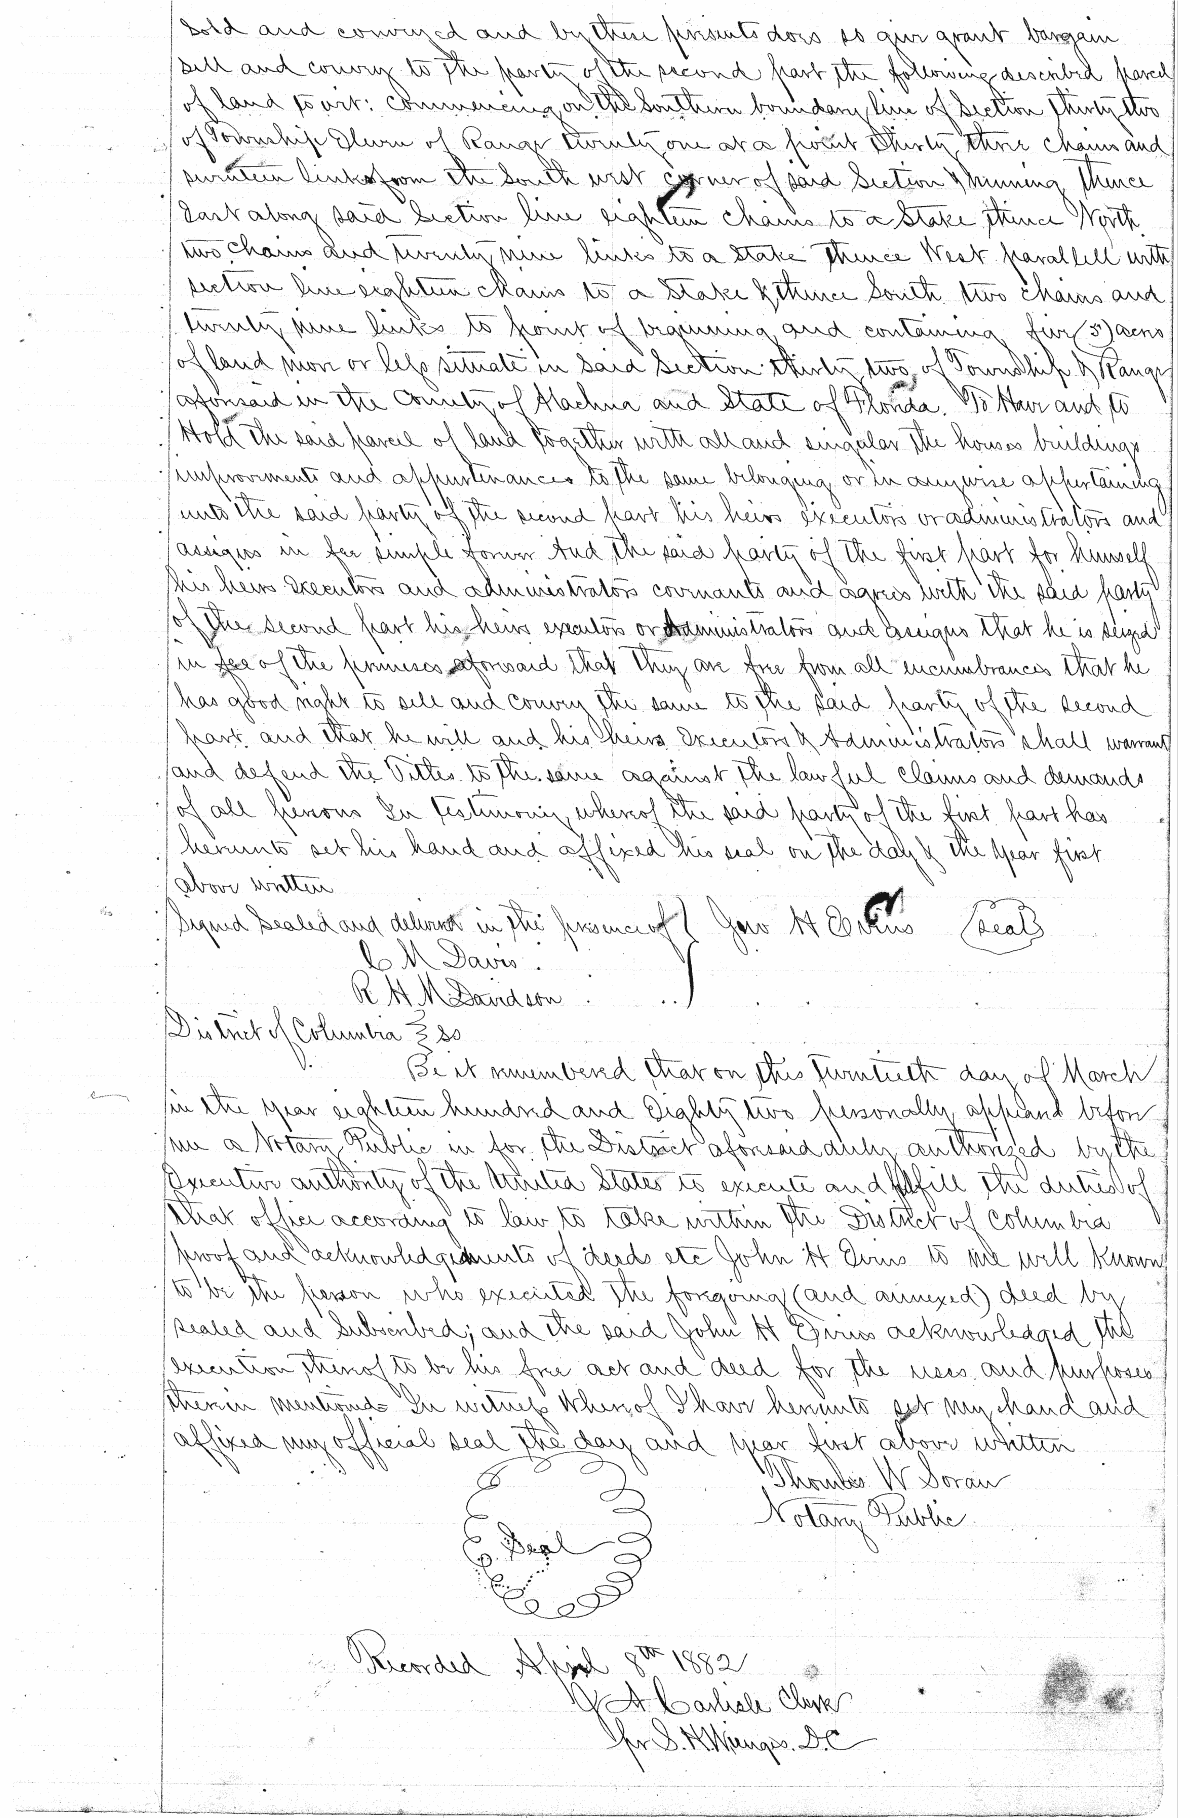 sold and conveyed and by these presents does so give grant bargain
sell and convey to the party of the second part the following described parcel
of land to wit: Commencing on the Southern boundary line of Section thirty two
of Township Eleven of Range twenty one at a point thirty three chains and
seventeen links from the South west corner of said Section & running thence
East along said Section line eighteen chains to a Stake thence North
two chains and twenty nine links to a Stake thence West parallell with
section line eighteen chains to a Stake & thence South two chains and
twenty nine links to point of beginning and containing five (5) acres
of land more or less situate in said Section thirty two of Township & Range
aforesaid in the County of Alachua and State of Florida. To Have and to
Hold the said parcel of land together with all and singular the houses buildings
improvements and appurtenances to the same belonging or in anywise appertaining
unto the said party of the second part his heirs executors or administrators and
assigns in fee simple forever And the said party of the first part for himself
his heirs Executors and administrators covenants and agrees with the said party
of the second part his heirs executors or administrators and assigns that he is seized
in fee of the premises aforesaid that they are free from all encumbrances that he
has good right to sell and convey the same to the said party of the second
part and that he will and his heirs Executors & Administrators shall warrant
and defend the Tittes to the same against the lawful claims and demands
of all persons In testimony whereof the said party of the first part has
hereunto set his hand and affixed his seal on the day & the year first
above written
Signed Sealed and delivered in the presence of } Jno H Evins (Seal)
C M Davis.
R H M Davidson
District of Columbia } ss
Be it remembered that on this twentieth day of March
in the year eighteen hundred and Eighty two personally appeared before
me a Notary Public in for the District aforesaid duly authorized by the
Executive authority of the United States to execute and fulfill the duties of
that office according to law to take within the District of Columbia
proof and acknowledgements of deeds etc John H Evins to me well known
to be the person who executed the foregoing (and annexed) deed by
sealed and Subscribed; and the said John H Evins acknowledged the
execution thereof to be his free act and deed for the uses and purposes
therein mentioned In witness Whereof I have hereunto set my hand and
affixed my official seal the day and year first above written
Thomas W Soran
Notary Public
Seal
Recorded April 8th 1882
J A Carlisle Clerk
pr S. H. Wienges. D.C